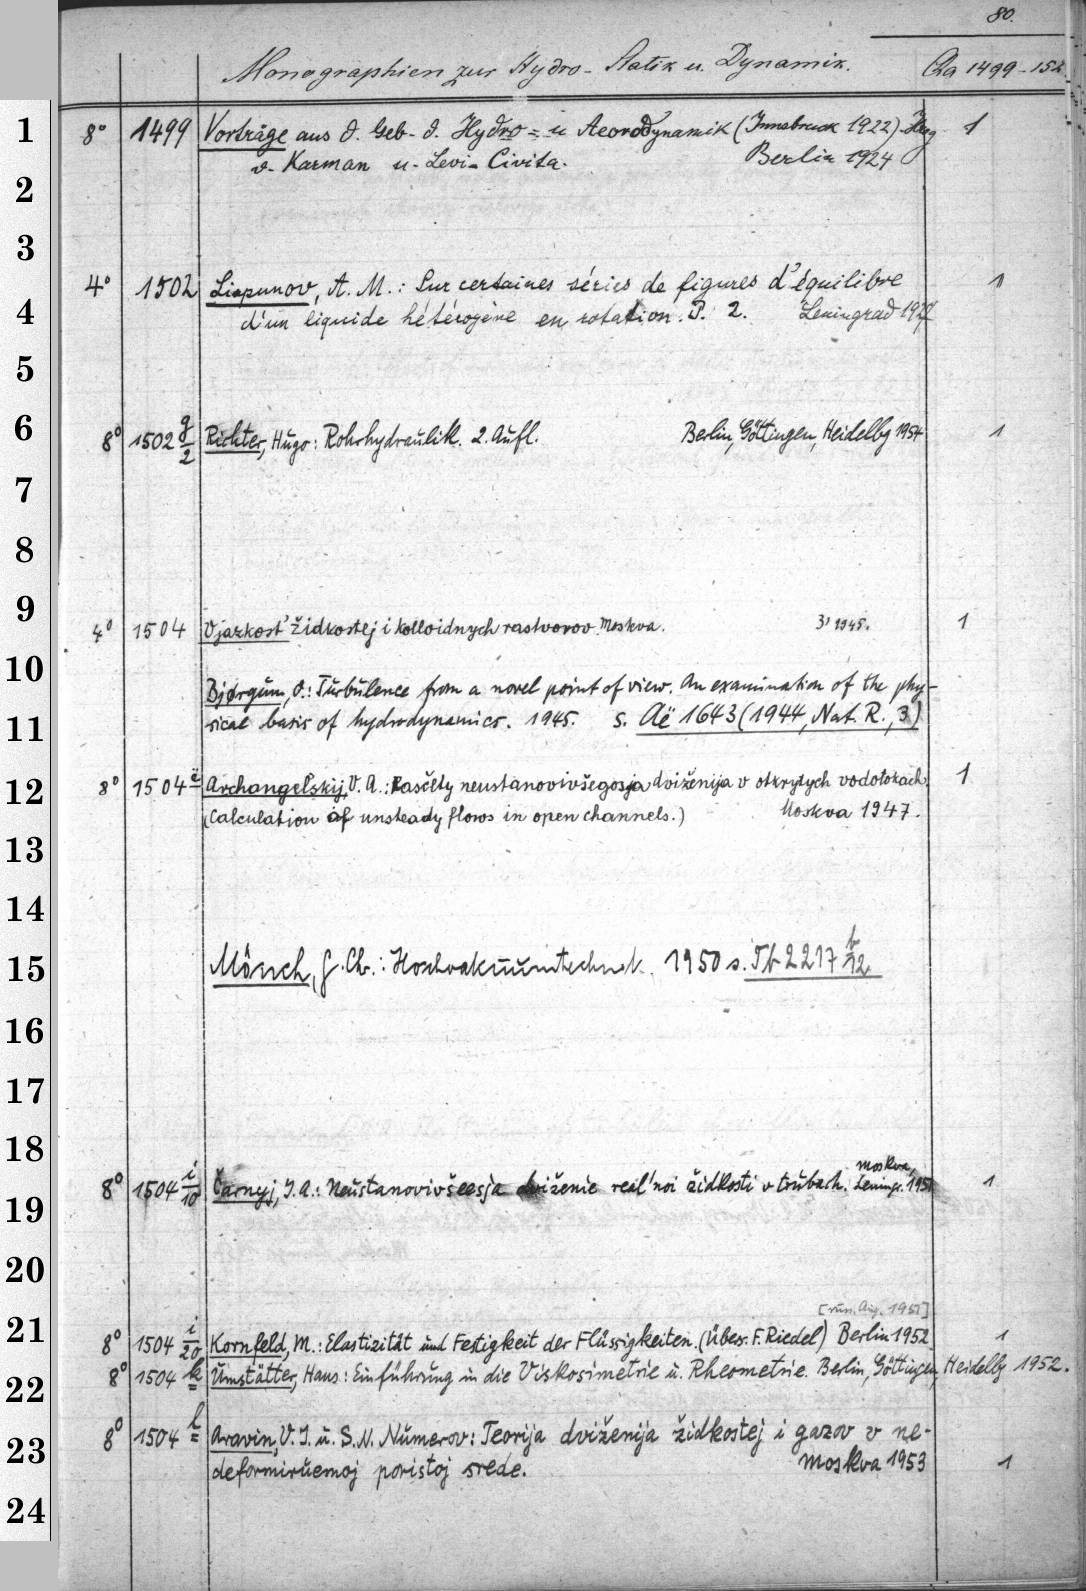 80.
Monographien zur Hydro- Statik u. Dynamik.
1499-152
1
8° 1499 Vorträge aus d. Geb. d. Hydro- u Aerodynamik (Innsbruck 1922). Hrsg. 1
v. Karman u. Levi-Civita. Berlin 1924
2
3
4° 1502 Liapunov, A. M.: Sur certaines séries de figures d'équilibre 1
4
d'un liquide hétérogène en rotation. P. 2. Leningrad 1927
5
6
8° 1502 g/2 Richter, Hugo: Rohrhydraulik. 2. Aufl. Berlin, Göttingen, Heidelbg 1954 1
7
8
9
4° 1504 Vjazkost' židkostej i kolloidnych rastvorov. Moskva. 3, 1945. 1
10
Bjørgum, O.: Turbulence from a novel point of view. An examination of the phy-
11
sical basis of hydrodynamics. 1945. s. Aë 1643 (1944, Nat. R., 3)
12
8° 1504 e Archangelskij, V. A.: Rasčëty neustanovivšegosja dviženija v otkrytych vodotokach. 1
(Calculation of unsteady flows in open channels.) Moskva 1947.
13
14
15
Mönch, G. Ch.: Hochvakuumtechnik. 1950 s. Tb 2217 b/12
16
17
18
8° 1504 i/10 Čarnyj, I. A.: Neustanovivšeesja dviženie real'noi židkosti v trubach. Moskva, Leningr. 1951 1
19
20
[russ. Ausg. 1951]
21
8° 1504 i/20 Kornfeld, M.: Elastizität und Festigkeit der Flüssigkeiten. (Übers. F. Riedel) Berlin 1952 1
22
8° 1504 k Umstätter, Hans: Einführung in die Viskosimetrie u. Rheometrie. Berlin, Göttingen, Heidelbg 1952.
8° 1504 l Aravin, V. I. u. S. N. Numerov: Teorija dviženija židkostej i gazov v ne-
23
deformiruemoj poristoj srede. Moskva 1953 1
24